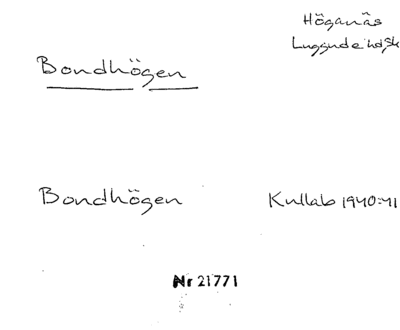 Höganäs
Luggude hd Sk
Bondhögen
Bondhögen Kullab 1940:41
Nr 21771